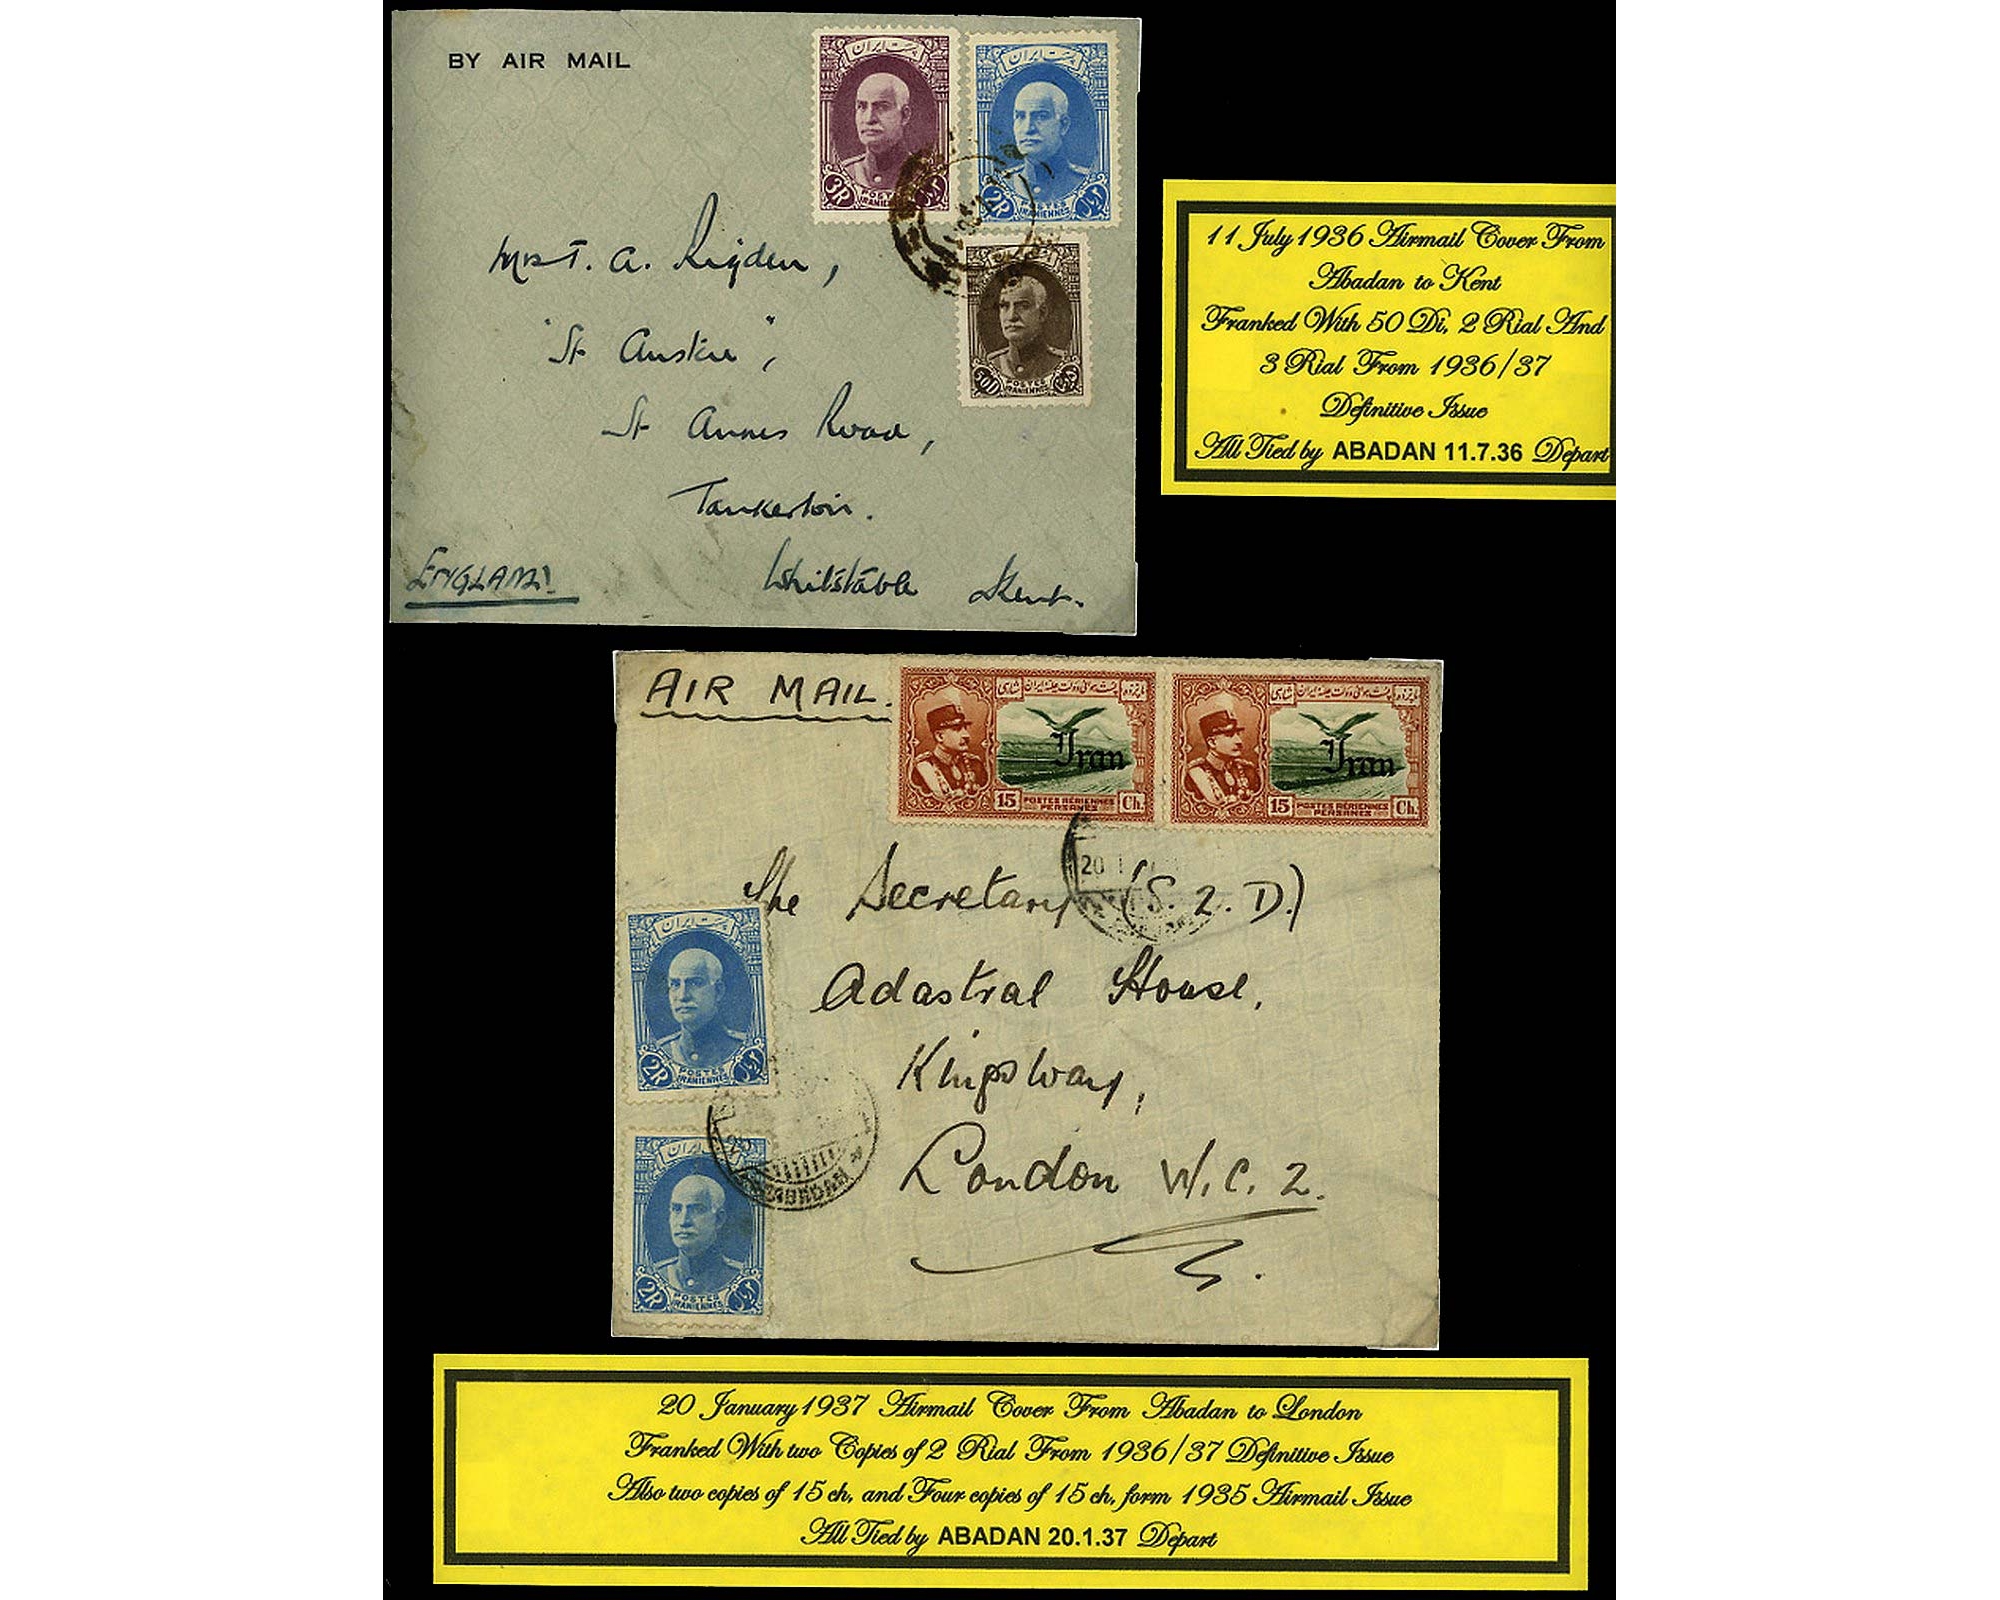 BY AIR MAIL
پست ایران
3R
POSTES
IRANIENNES
پست ایران
2R
POSTES
IRANIENNES
50D
POSTES
IRANIENNES
Mrs T. A. Rigden,
"St Austin",
St Annes Road,
Tankerton.
Whitstable Kent.
ENGLAND
11 July 1936 Airmail Cover From
Abadan to Kent
Franked With 50 Di, 2 Rial And
3 Rial From 1936/37
Definitive Issue
All Tied by ABADAN 11.7.36 Depart
AIR MAIL.
شاهی پست هوائی دولت علیه ایران پانزده
Iran
15 POSTES AÉRIENNES PERSANES Ch.
شاهی پست هوائی دولت علیه ایران پانزده
Iran
15 POSTES AÉRIENNES PERSANES Ch.
20
The Secretary (S. 2. D.)
Adastral House,
Kingsway,
London W.C. 2.
پست ایران
2R
POSTES
IRANIENNES
پست ایران
2R
POSTES
IRANIENNES
20 January 1937 Airmail Cover From Abadan to London
Franked With two Copies of 2 Rial From 1936/37 Definitive Issue
Also two copies of 15 ch, and Four copies of 15 ch, form 1935 Airmail Issue
All Tied by ABADAN 20.1.37 Depart